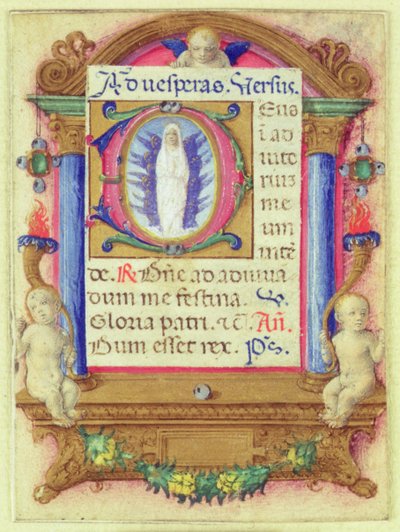 Ad vesperas. Versus.
Deus
ī ad
iuto
riuz
me
um
intē
de. R Dn̄e ad adiuva
dum me festina. V.
Gloria patri. ⁊ c̄. Añ.
Dum esset rex. Ps.